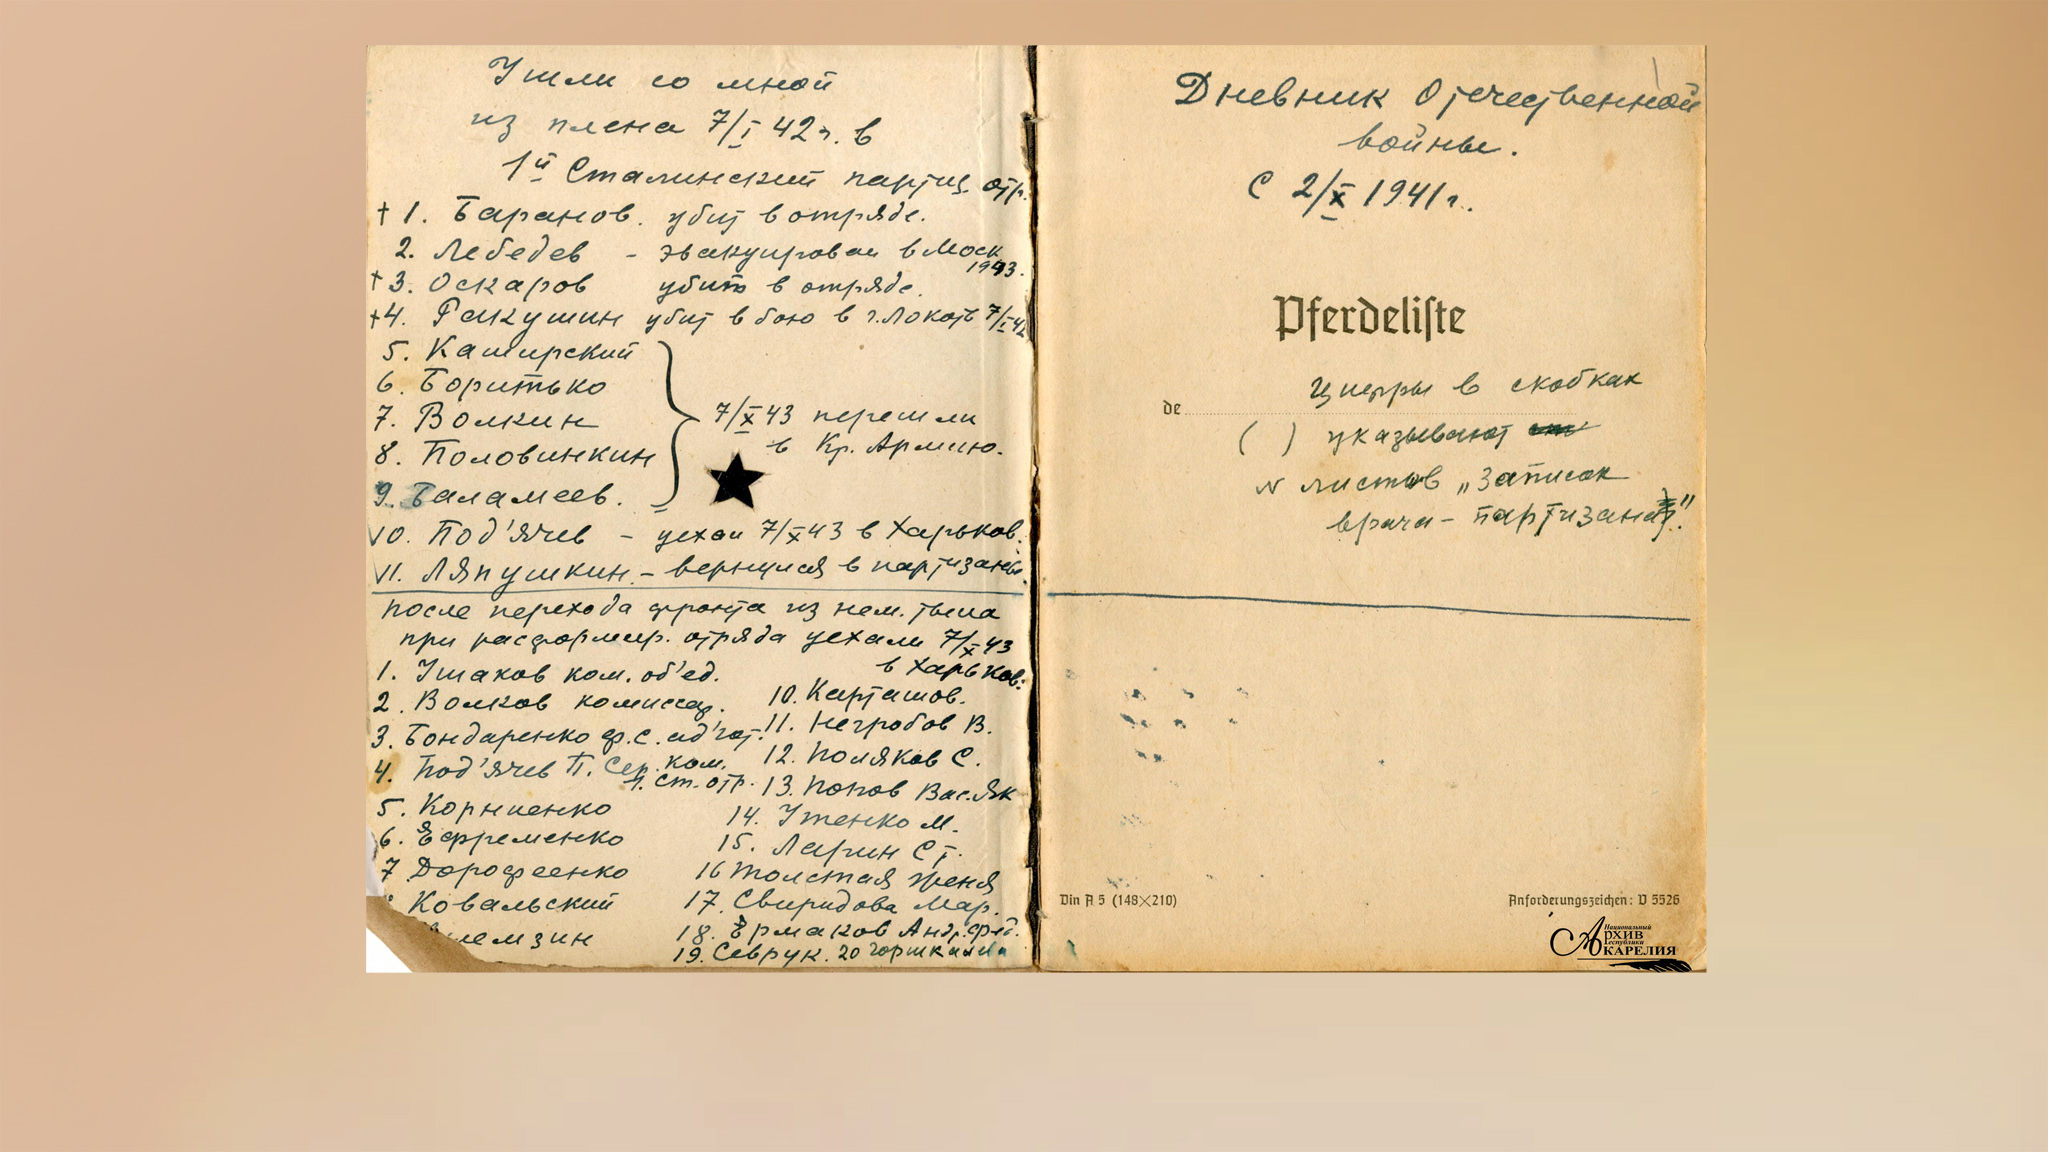 Ушли со мной
из плена 7/I 42г. в
1й Сталинский партиз. отр.
† 1. Баранов. убит в отряде.
2. Лебедев - эвакуирован в Моск
1943.
† 3. Оскаров убит в отряде.
† 4. Ракушин убит в бою в г. Локоть 7/I 42
5. Каширский
6. Боритько
7. Волкин
8. Половинкин
9. Баламеев.
7/X 43 перешли
в Кр. Армию.
10. Под'ячев - уехал 7/X 43 в Харьков.
11. Ляпушкин. - вернулся в партизаны.
После перехода фронта из нем. тыла
при расформир. отряда уехали 7/X 43
в Харьков:
1. Ушаков ком. об'ед.
2. Волков комиссар.
3. Бондаренко ф.с. ад'ют.
4. Под'ячев П. Сер. ком.
1. ст. отр.
5. Корниенко
6. Ефременко
7 Дорофеенко
Ковальский
10. Карташов.
11. Негробов В.
12. Поляков С.
13. Попов Вас. Як
14. Утенко М.
15. Ларин Ст.
16 Толстая Женя
17. Свиридова Мар.
18. Ермаков Андр. Фед.
19. Севрук. 20
Дневник Отечественной
войны.
С 2/X 1941г.
Pferdeliste
Цифры в скобках
de
( ) указывают
N листов „Записок
врача - партизана"
Din A 5 (148×210)
Anforderungszeichen: V 5526
Национальный
Архив
Республики
Карелия